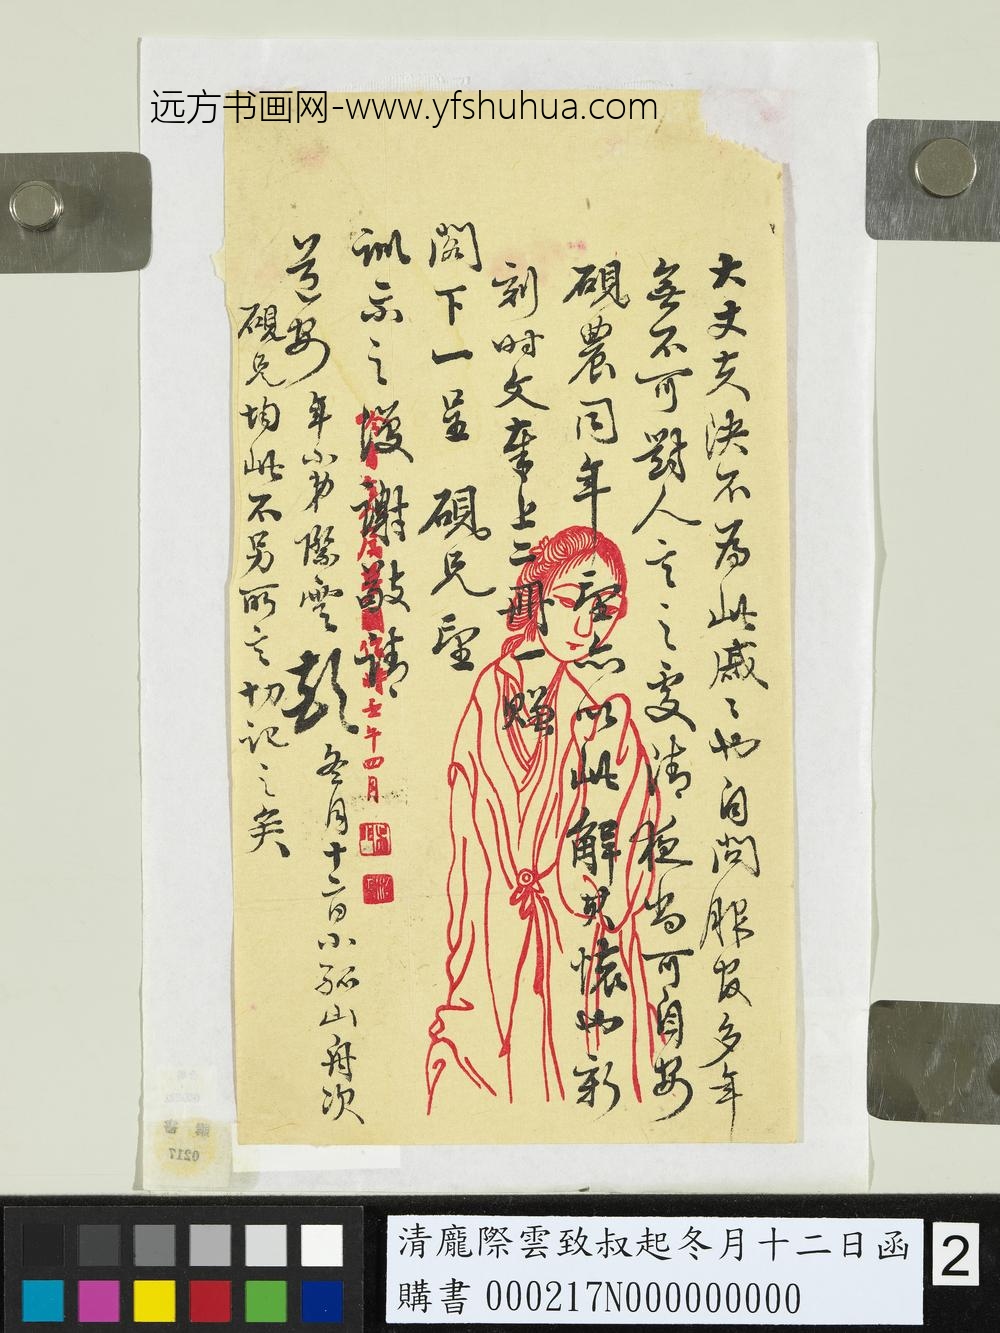 远方书画网-www.yfshuhua.com
大丈夫決不為此戚〻也自問服官多年
無不可對人言之處清夜尚可自安
硯農同年 望亦以此解其懷也新
刻時文奉上二冊一贈
閣下一呈 硯兄望
訓示之 謝敬請
道安 年小弟際雲 冬月十二日小孤山舟次
硯兄均此不另所言切記之矣
壬午四月
購書
0217
清龐際雲致叔起冬月十二日函
購書 000217N000000000
2